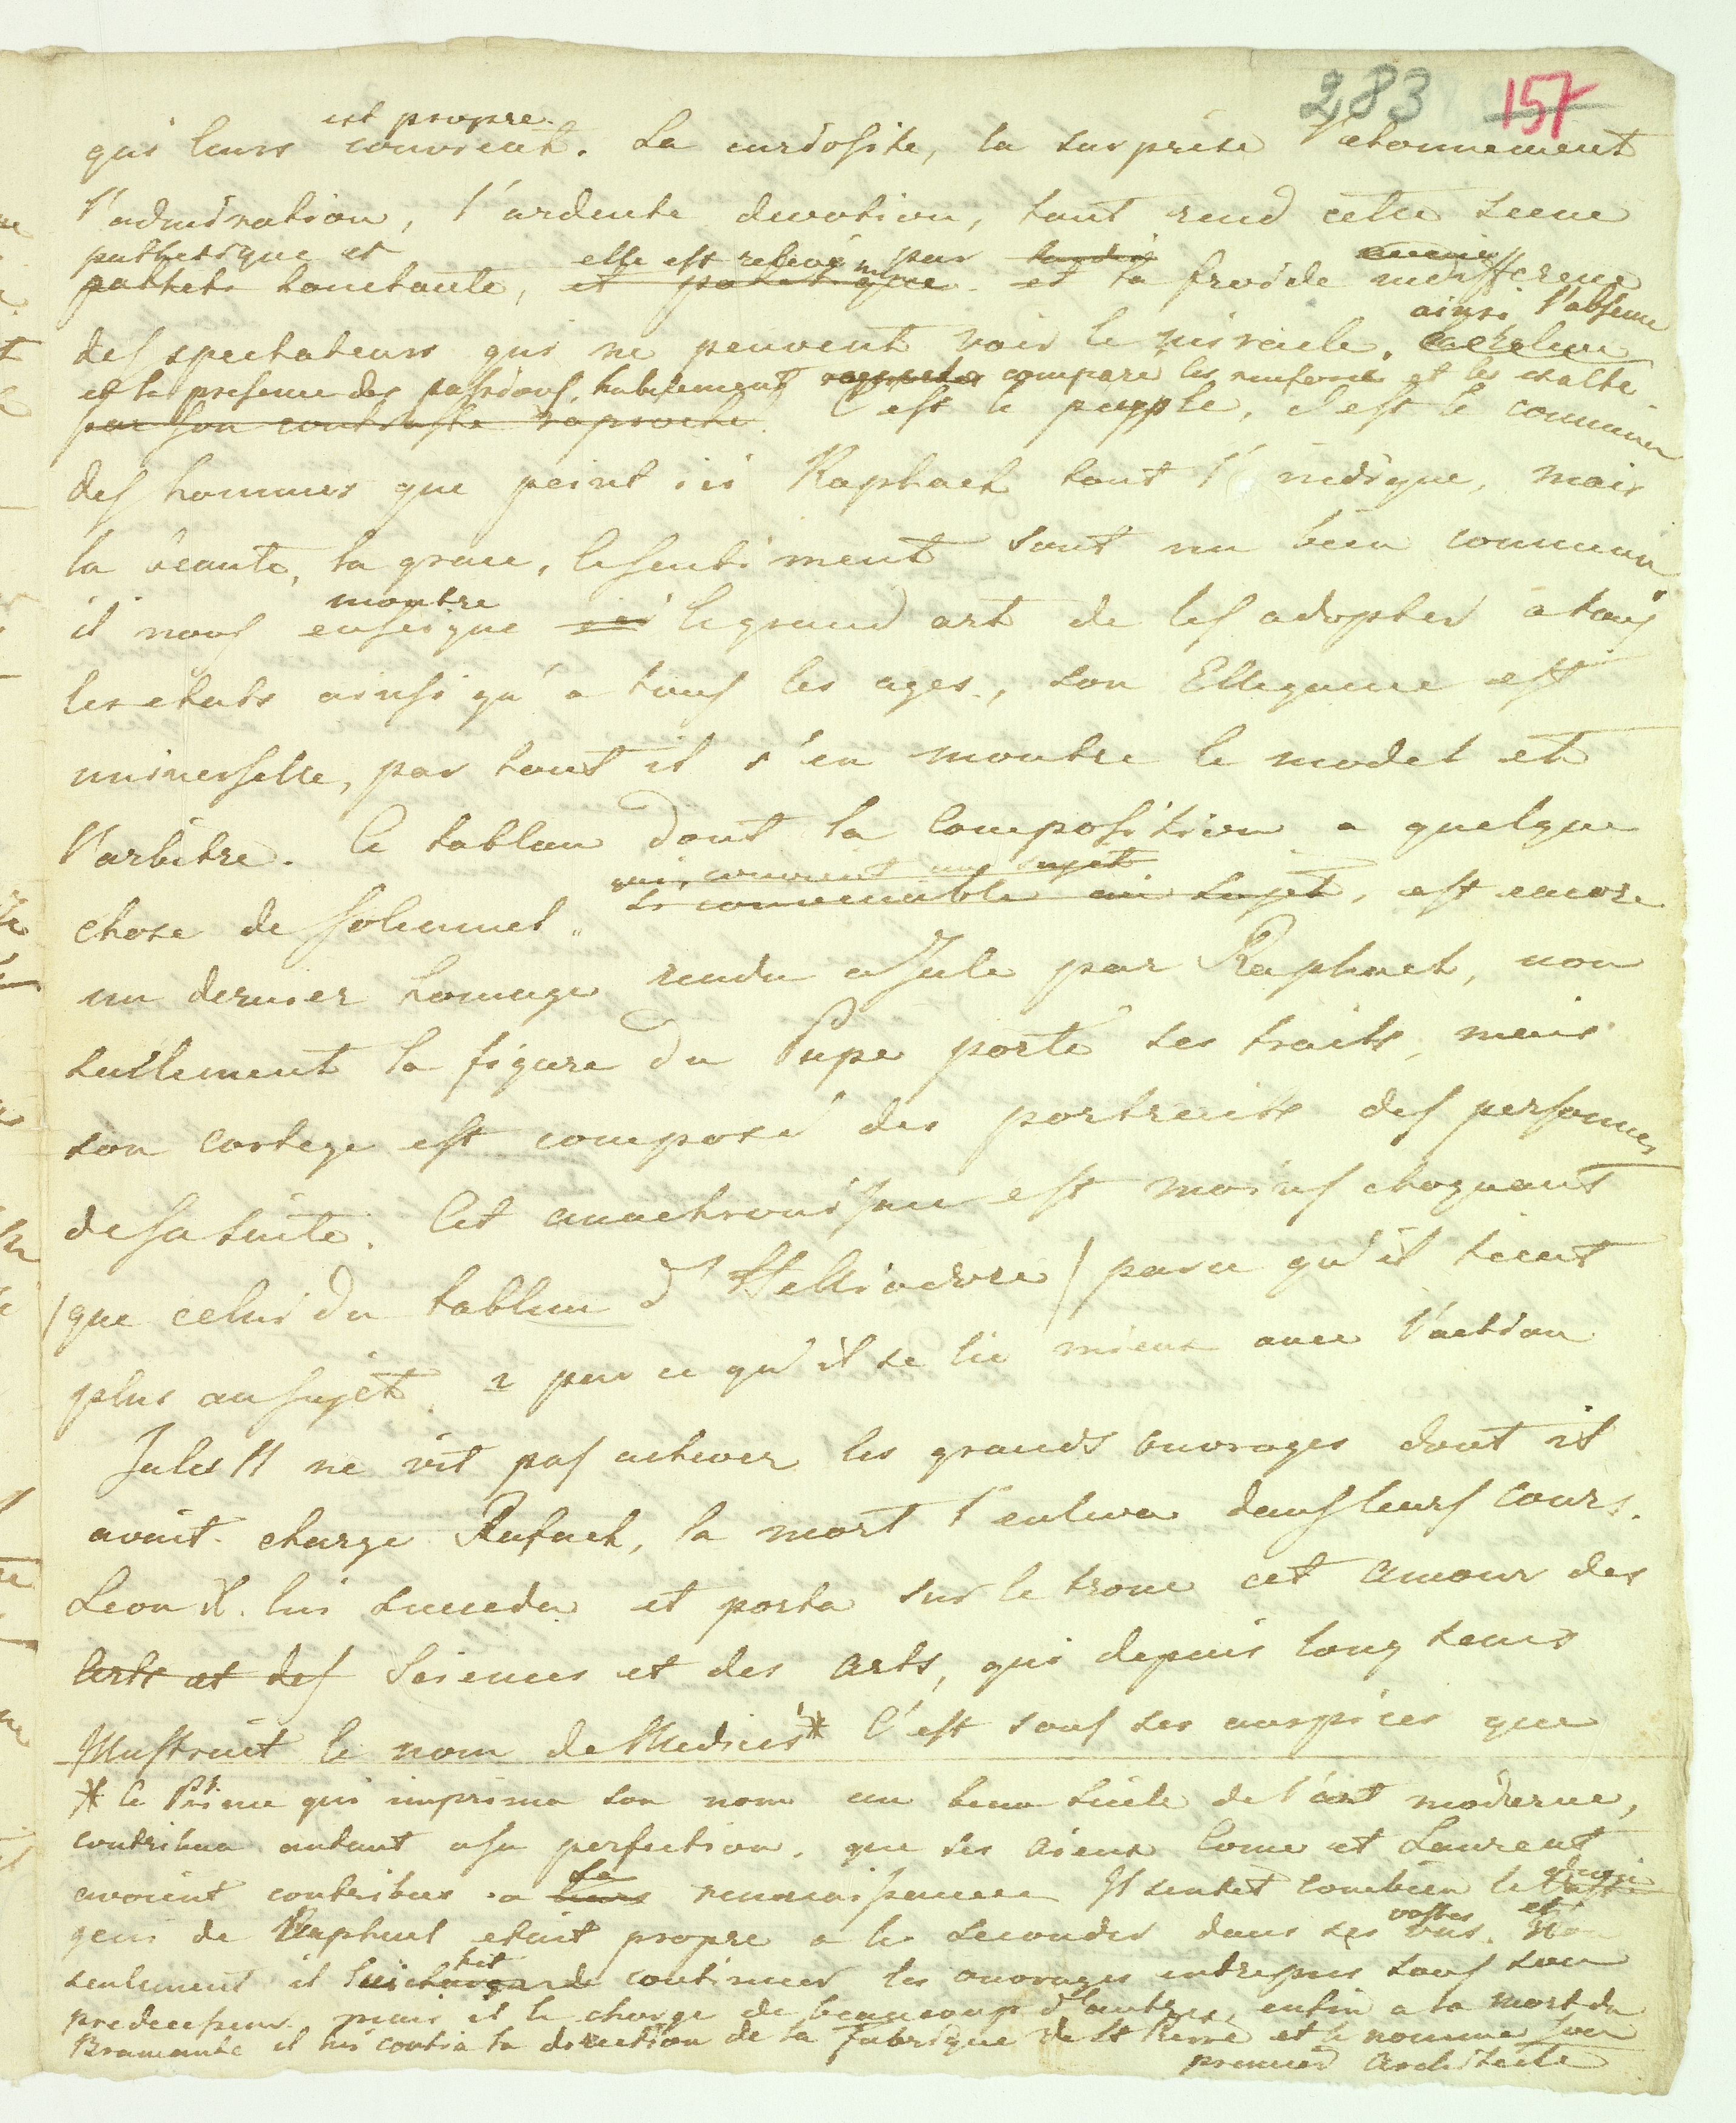 283 157
est propre
qui leurs convient. La curiosite, la surprise l'etonnement
l'admiration, l'ardente devotion, tout rend cette scene
pathetique et elle est relevé par
patheti touchante, et pathetique et la froide indifference
ainsi l'absence
des spectateurs qui ne peuvent voir le miracle.
et la presence des passions, habilement compare les renforce et les exalte
par son contraste raproché. C'est le peuple, c'est le commun
des hommes que peint ici Raphael tout l'indique, mais
la beauté, la grace, le sentiment sont un bien commun
montre
il nous enseigne ici le grand art de les adopter a tous
les etats ainsi qu'a tous les ages., son Ellegance est
universelle, par tout il s'en montre le model et
l'arbitre. Ce tableau dont la Composition a quelque
convient au sujet
chose de solemnel. si convenable au sujet, est encore
un dernier homage rendu a Jule par Raphael, non
seullement la figure du Pape porte ses traits, mais
son cortege est composé des portraits des personnes
de sa suite. Cet anachronisme est moins choquant
/que celui du tableau d'Helliodore/ parce qu'il tient
plus au sujet. 2 par ce qu'il se lie mieux avec l'action
Jules II ne vit pas achever les grands ouvrages dont il
avait chargé Rafael, la mort l'enleva dans leurs cours.
Leon X. lui succeda et porta sur le trone cet amour des
Arts et des Sciences et des Arts, qui depuis long tems
Illustrait le nom de Medicis* C'est sous ses auspices que
* Ce Prince qui imprima son nom au beau siecle de l'art moderne,
contribua autant a sa perfection, que ses aieux Come et Laurent
sa
avoient contribué a leurs renaissance Il sentit combien le
vastes et
genie de Raphael etait propre a le seconder dans ses vues. Non
fit
seulement il lui chargea de continuer les ouvrages entrepris sous son
predecesseur, mais il le charge de beaucoup d'autres, enfin a la mort du
Bramante il lui confia la direction de la Fabrique de St Pierre et le nomme son
premier Architecte